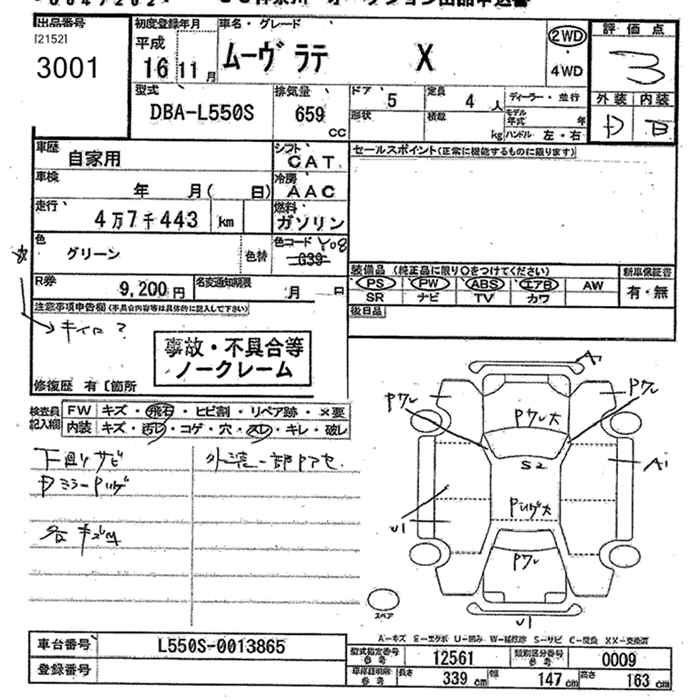 出品番号 [2152] 3001
初度登録年月 平成 16 11月
車名・グレード ムーヴラテ X
2WD・4WD
評価点 3
外装 内装 D B
型式 DBA-L550S
排気量 659 CC
ドア 5 定員 4人
ディーラー・並行
形状 積載 kg
モデル年式 年
ハンドル 左・右
車歴 自家用
シフト CAT
セールスポイント(正常に機能するものに限ります)
車検 年 月( 日)
冷房 AAC
走行 4万7千443 km
燃料 ガソリン
色 グリーン 色替
色コード Y08 G39
R券 9,200円
名変通知期限 月 日
装備品 (純正品に限り○をつけてください)
新車保証書 有・無
PS PW ABS エアB AW
SR ナビ TV カワ
後日品
注意事項申告欄(不具合内容等は具体的に記入して下さい)
キイロ?
事故・不具合等
ノークレーム
修復歴 有〔箇所
検査員記入欄
FW キズ・飛石・ヒビ割・リペア跡・×要
内装 キズ・汚レ・コゲ・穴・スレ・キレ・破レ
下廻りサビ
外装一部Pアセ
各キズ凹
A
Pクレ
Pクレ大
Pクレ
S2
Ai
U1
Pクレ
U1
スペア
A-キズ E-エクボ U-凹み W-補修跡 S-サビ C-腐食 XX-交換済
車台番号 L550S-0013865
登録番号
型式指定番号 参考 12561
類別区分番号 参考 0009
車検証記載 参考 長さ 339cm 幅 147cm 高さ 163cm